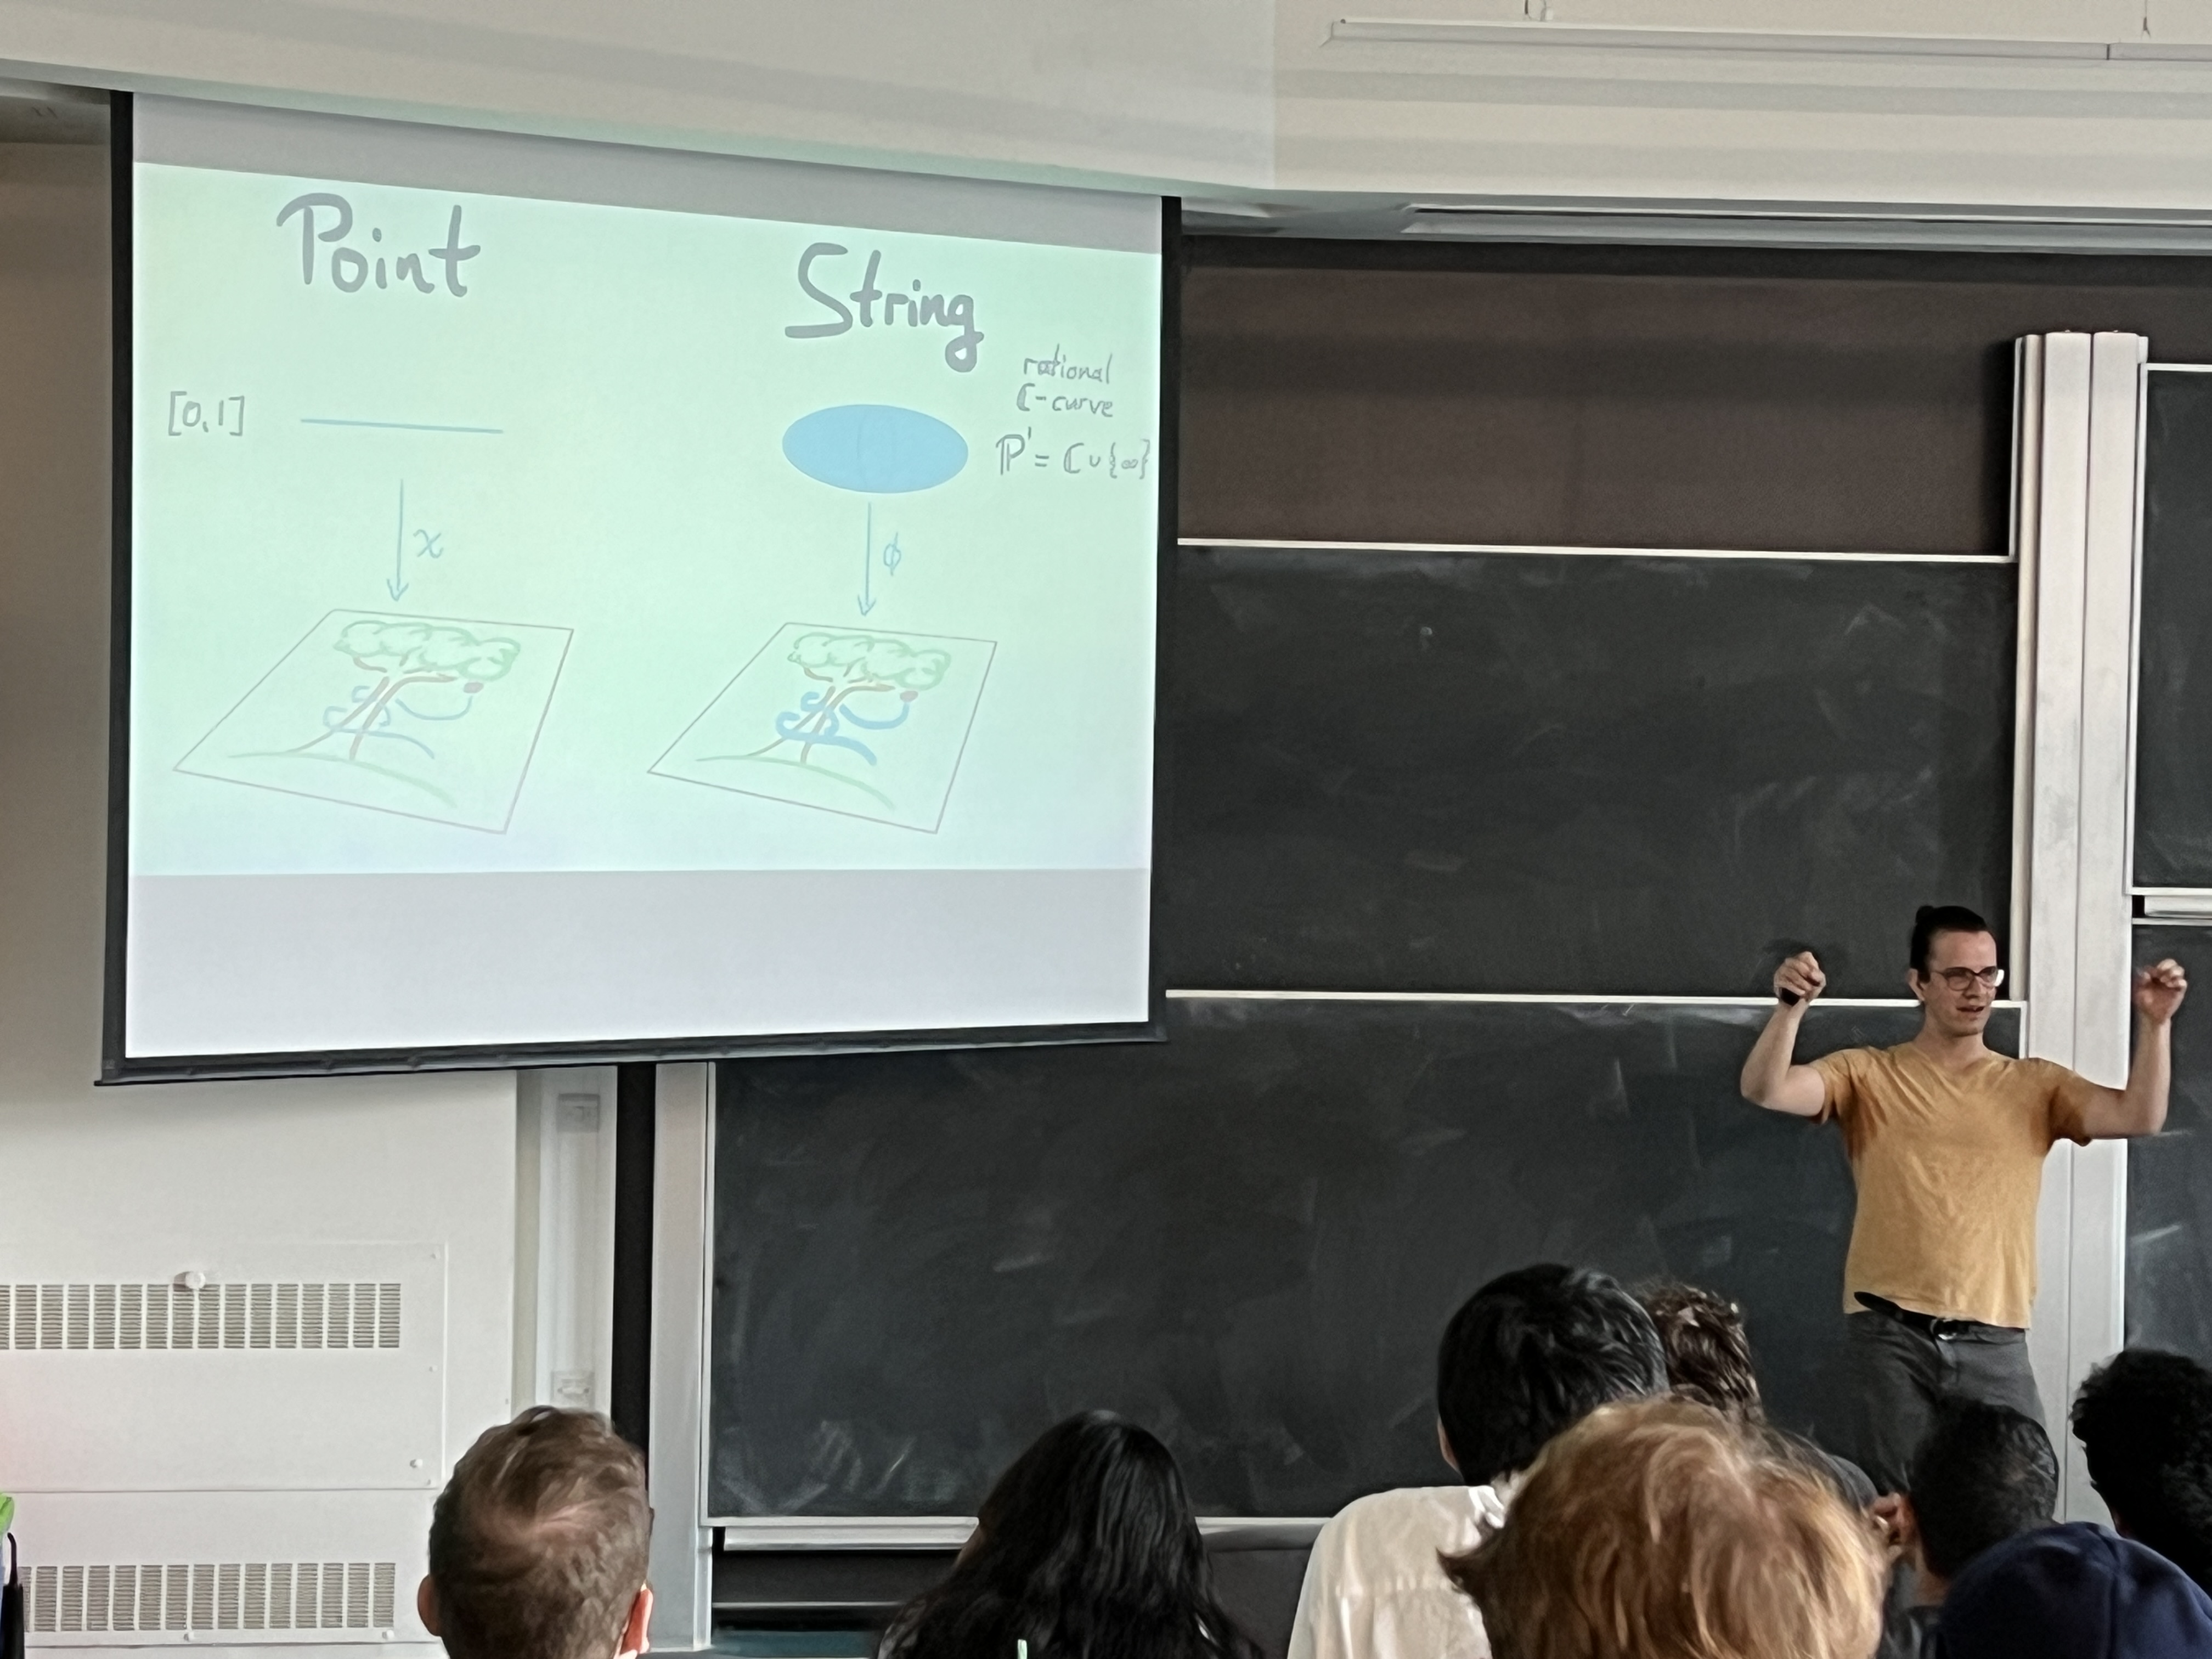 Point
String
rational
ℂ-curve
[0,1]
ℙ¹ = ℂ ∪ {∞}
x
ϕ